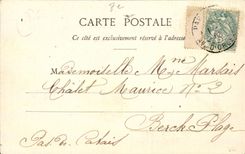 CARTE POSTALE
Ce côté est exclusivement réservé à l'adresse
Mademoiselle
Châlet Maurice Nº 2
Berck Plage
Pas de Calais